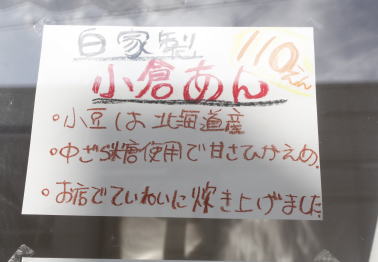 自家製
110えん
小倉あん
・小豆は北海道産
・中ざら糖使用で甘さひかえめ。
・お店でていねいに炊き上げました